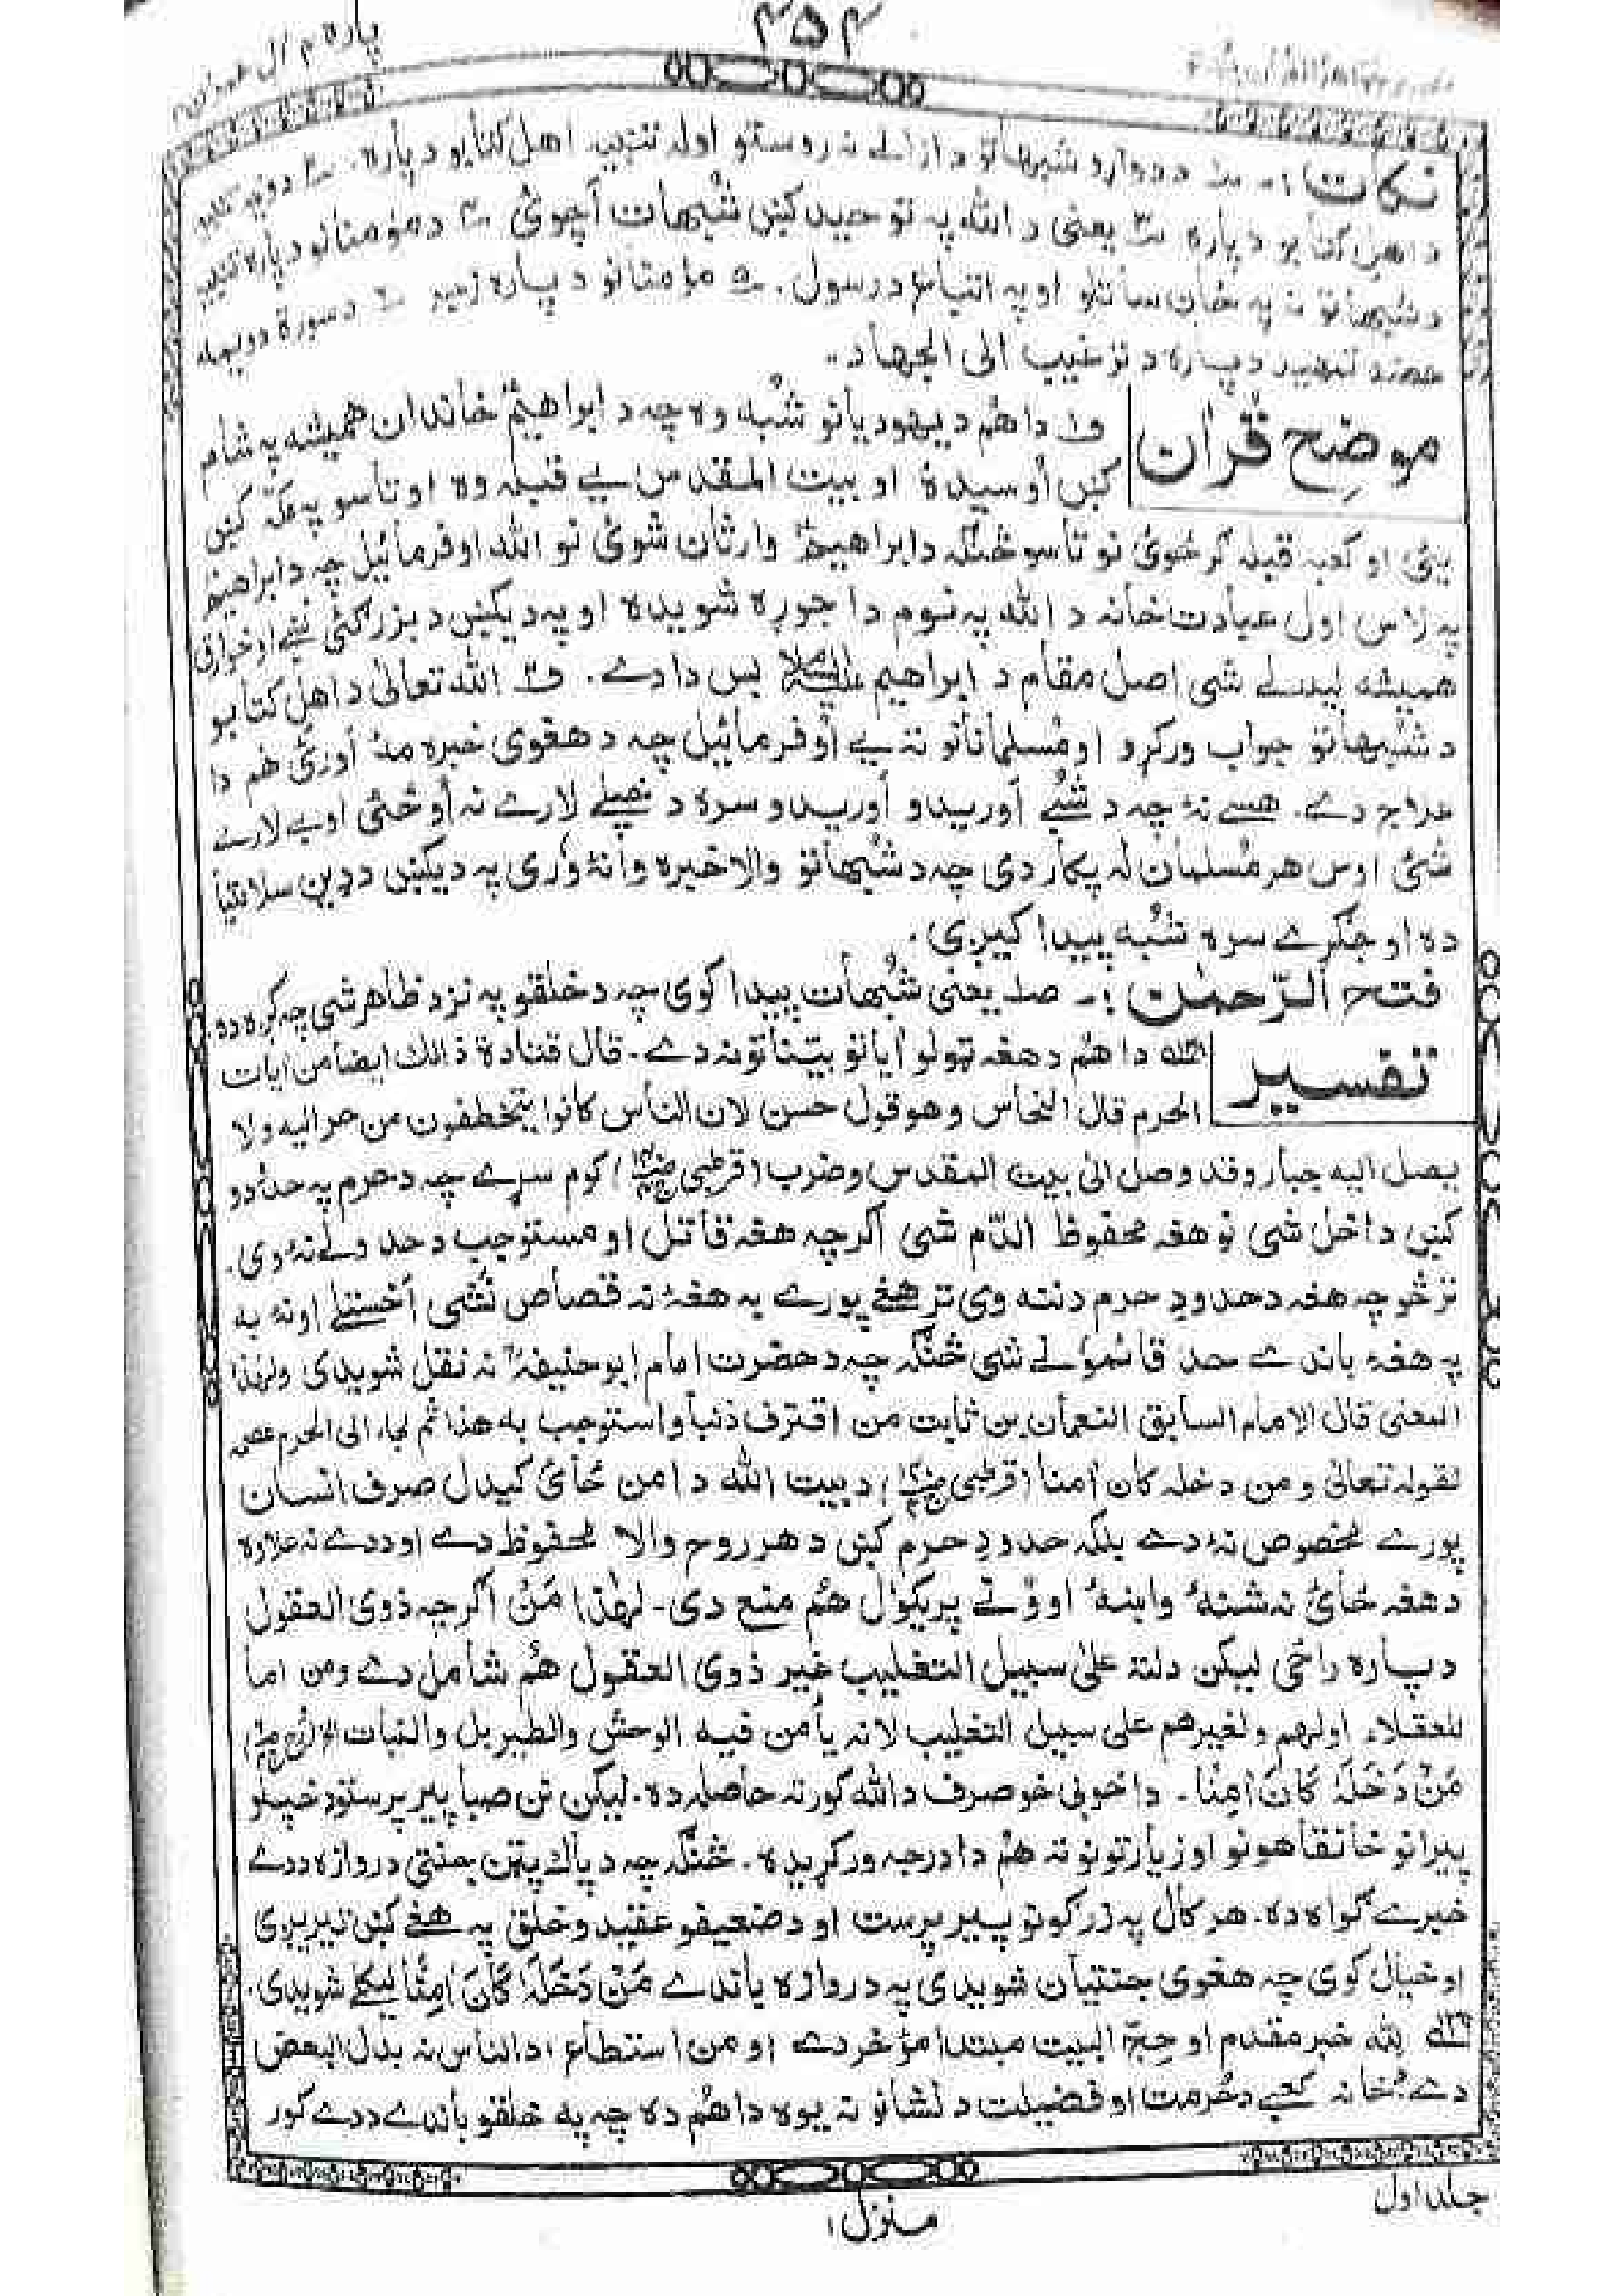 ۳۵۴
پاره ۴ اٰل عمرٰن ۳
نکات ۱- د دوارو شبهاتو د ازالے نه روستو اوله تنبیه اهل کتابو دپاره
د اهل کتابو دپاره یعنی د الله په توحید کښ شبهات اچوئ د مؤمنانو دپاره تنبیه
د شبهاتو نه په ځان ساتلو او په اتباع د رسول. مؤمنانو دپاره زجر د سورة دویمه
حصه تمهید دپاره د ترغیب الی الجهاد..
موضح قرآن
ف۱ دا هم د یهودیانو شبه وه چه د ابراهیمؑ خاندان همیشه په شام
کښ اوسیدهٔ او بیت المقدس یے قبله وه او تاسو په مکه کښ
یئی او کعبه قبله ګرځوئ نو تاسو څنګه د ابراهیمؑ وارثان شوئ نو الله اوفرمائیل چه د ابراهیمؑ
په لاس اول عبادت خانه د الله په نوم دا جوړه شویده او په دیکښ د بزرګئ نښے او خوارق
همیشه لیدلے شی اصل مقام د ابراهیم علیه السلام بس دا دے. ف۲ الله تعالٰی د اهل کتابو
د شبهاتو جواب ورکړو او مسلمانانو ته یے اوفرمائیل چه د هغوی خبره مه اورئ هم دا
علاج دے. هسے نهٔ چه د شبے اوریدو اوریدو سره د خپلے لارے نه اوځئ او بے لارے
شئ اوس هر مسلمان له پکار دی چه د شبهاتو والا خبره وانهٔ وری په دیکښ د دین سلامتیا
ده او جګړے سره شبه پیدا کیږی.
فتح الرّحمٰن :- صـ۱ یعنی شبهات پیدا کوی چه د خلقو په نزد ظاهر شی چه کږه ده.
تفسیر
دا هم د هغه ټولو ایاتو بیّناتو نه دے. قال قتادة ذالك ایضا من ایات
الحرم قال النحاس وهو قول حسن لان الناس کانوا یتخطفون من حوالیه ولا
یصل الیه جبار وقد وصل الیٰ بیت المقدس وخرب (قرطبی) کوم سړے چه د حرم په حدودو
کښ داخل شی نو هغه محفوظ الدّم شی اګرچه هغه قاتل او مستوجب د حد ولے نهٔ وی.
ترڅو چه هغه د حدودِ حرم دننه وی ترهغے پورے به هغهٔ نه قصاص نشی اخستلے او نهٔ به
په هغهٔ باندے حد قائمولے شی څنګه چه د حضرت امام ابو حنیفهؒ نه نقل شویدی ولهٰذا
المعنی قال الامام السابق النعمان بن ثابت من اقترف ذنبا واستوجب به حدا ثم لجاء الی الحرم عصمه
لقوله تعالٰی ومن دخله کان امنا (قرطبی) د بیت الله د امن ځائ کیدل صرف انسان
پورے مخصوص نهٔ دے بلکه حدودِ حرم کښ د هر روح والا محفوظ دے او ددے نه علاوه
د هغه ځائ نه شنهٔ وابنهٔ او ؤنے پریکول هم منع دی۔ لهٰذا مَنْ اګرچه ذوی العقول
دپاره راځی لیکن دلته علیٰ سبیل التغلیب غیر ذوی العقول هم شامل دے ومن اما
للعقلاء اولهم ولغیرهم علی سبیل التغلیب لانه یأمن فیه الوحش والطیر بل والنبات
مَنْ دَخَلَهٗ کَانَ اٰمِنًا۔ دا خوبی خو صرف د الله کور ته حاصله ده. لیکن نن صبا پیر پرستو د خپلو
پیرانو خانقاهونو او زیارتونو ته هم دا درجه ورکړیده. څنګه چه د پاك پتن بهشتی دروازه ددے
خبرے ګواه ده. هر کال په زرګونو پیر پرست او د ضعیفو عقیدو خلق په هغے کښ تیریږی
او خیال کوی چه هغوی جنتیان شویدی په دروازه باندے مَنْ دَخَلَهٗ کَانَ اٰمِنًا لیکلے شویدی.
لله خبر مقدم او حِجّ البیت مبتدا مؤخر دے او من استطاع د الناس نه بدل البعض
دے. خانه کعبے د حُرمت او فضیلت د نشانو نه یوه دا هم ده چه په خلقو باندے ددے کور
جلد اول
منزل ۱